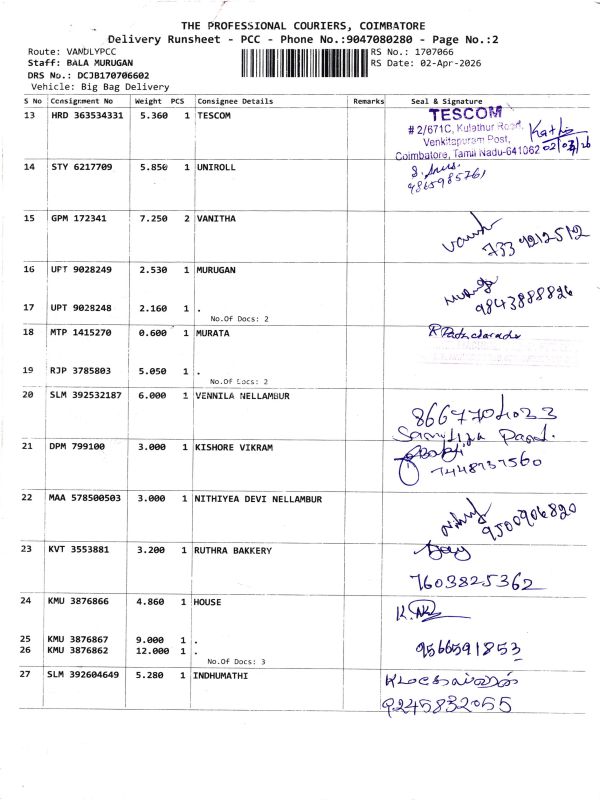 THE PROFESSIONAL COURIERS, COIMBATORE
Delivery Runsheet - PCC - Phone No.:9047080280 - Page No.:2
Route: VANDLYPCC
RS No.: 1707066
Staff: BALA MURUGAN
RS Date: 02-Apr-2026
DRS No.: DCJB170706602
Vehicle: Big Bag Delivery
S No Consignment No Weight PCS Consignee Details Remarks Seal & Signature
13 HRD 363534331 5.360 1 TESCOM
TESCOM
# 2/671C, Kulathur Road,
Venkitapuram Post,
Coimbatore, Tamil Nadu-641062
14 STY 6217709 5.850 1 UNIROLL
9865985761
15 GPM 172341 7.250 2 VANITHA
733 9212512
16 UPT 9028249 2.530 1 MURUGAN
9843888826
17 UPT 9028248 2.160 1 .
No.Of Docs: 2
18 MTP 1415270 0.600 1 MURATA
19 RJP 3785803 5.050 1 .
No.Of Locs: 2
20 SLM 392532187 6.000 1 VENNILA NELLAMBUR
8667704033
21 DPM 799100 3.000 1 KISHORE VIKRAM
7448737560
22 MAA 578500503 3.000 1 NITHIYEA DEVI NELLAMBUR
9500906820
23 KVT 3553881 3.200 1 RUTHRA BAKKERY
7603825362
24 KMU 3876866 4.860 1 HOUSE
25 KMU 3876867 9.000 1 .
26 KMU 3876862 12.000 1 .
9566591853
No.Of Docs: 3
27 SLM 392604649 5.280 1 INDHUMATHI
9245832055